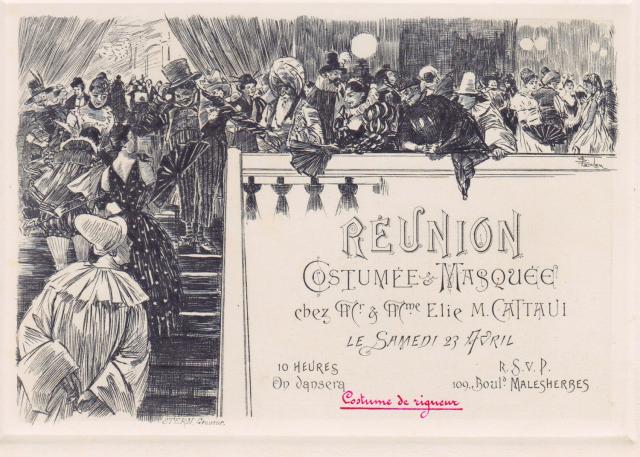 RÉUNION
COSTUMÉE & MASQUÉE
chez Mr & Mme ELIE M. CATTAUI
LE SAMEDI 23 AVRIL
10 HEURES
On dansera
R.S.V.P.
109, Bould MALESHERBES
Costume de rigueur
STERN, Graveur.